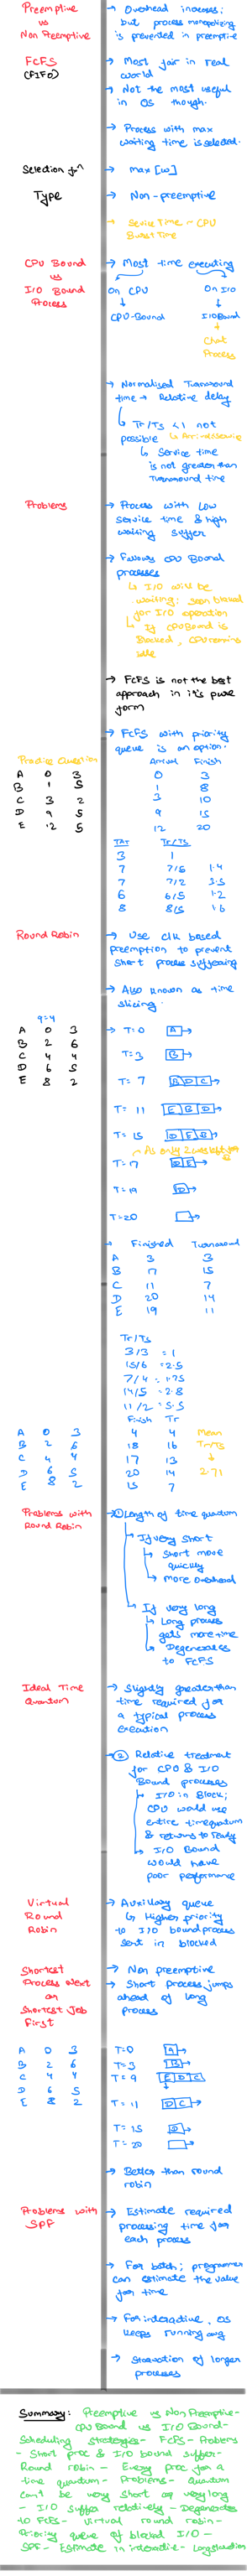 Preemptive
vs
Non Preemptive
→ Overhead increases;
but process monopolizing
is prevented in preemptive
FCFS
(FIFO)
→ Most fair in real
world
→ Not the most useful
in OS though.
→ Process with max
waiting time is selected.
Selection fn
→ max [w]
Type
→ Non-preemptive
→ Service Time ~ CPU
Burst Time
CPU Bound
vs
I/O Bound
Process
→ Most time executing
On CPU
On I/O
CPU-Bound
I/O Bound
Chat
Process
→ Normalised Turnaround
time → Relative delay
↳ Tr/Ts < 1 not
possible
↳ Service time
is not greater than
Turnaround time
Problems
→ Process with Low
service time & high
waiting suffer
→ Favours CPU Bound
processes
↳ I/O will be
waiting: soon blocked
for I/O operation
↳ If CPU Bound is
Blocked, CPU remains
idle
→ FCFS is not the best
approach in it's pure
form
→ FCFS with priority
queue is an option.
Practice Question
A 0 3
B 1 5
C 3 2
D 9 5
E 12 5
Arrival Finish
0 3
1 8
3 10
9 15
12 20
TAT Tr/Ts
3 1
7 7/5 1.4
7 7/2 3.5
6 6/5 1.2
8 8/5 1.6
Round Robin
→ Use clk based
preemption to prevent
short process suffering
→ Also known as time
slicing.
q=4
A 0 3
B 2 6
C 4 4
D 6 5
E 8 2
→ T=0 A
T=3 B
T=7 B D C
T=11 E B D
T=15 D E B
→ As only 2 was left for
T=17 D E
T=19 D
T=20
→ Finished Turnaround
A 3 3
B 17 15
C 11 7
D 20 14
E 19 11
Tr/Ts
3/3 = 1
15/6 = 2.5
7/4 = 1.75
14/5 = 2.8
11/2 = 5.5
A 0 3
B 2 6
C 4 4
D 6 5
E 8 2
Finish Tr
4 4
18 16
17 13
20 14
15 7
Mean
Tr/Ts
↓
2.71
Problems with
Round Robin
→ ① Length of time quantum
→ If very short
↳ Short move
quickly
↳ More overhead
→ If very long
↳ Long process
gets more time
↳ Degenerates
to FCFS
Ideal Time
Quantum
→ Slightly greater than
time required for
a typical process
execution
→ ② Relative treatment
for CPU & I/O
Bound processes
↳ I/O in Block;
CPU would use
entire time quantum
& returns to Ready
↳ I/O Bound
would have
poor performance
Virtual
Round
Robin
→ Auxillary queue
↳ Higher priority
to I/O bound process
sent in blocked
Shortest
Process Next
or
Shortest Job
First
→ Non preemptive
→ Short process jumps
ahead of long
process
A 0 3
B 2 6
C 4 4
D 6 5
E 8 2
T=0 A
T=3 B
T=9 E D C
T=11 D C
T=15 D
T=20
→ Better than round
robin
Problems with
SPF
→ Estimate required
processing time for
each process
→ For batch; programmer
can estimate the value
for time
→ For interactive, OS
keeps running avg
→ Starvation of longer
processes
Summary: Preemptive vs Non Preemptive-
CPU Bound vs I/O Bound-
Scheduling strategies - FCFS - Problems
- Short proc & I/O bound suffer-
Round robin - Every proc for a
time quantum - Problems - Quantum
can't be very short or very long
- I/O suffer relatively - Degenerates
to FCFS - Virtual round robin -
Priority queue of blocked I/O -
SPF - Estimate in interactive - Long starvation